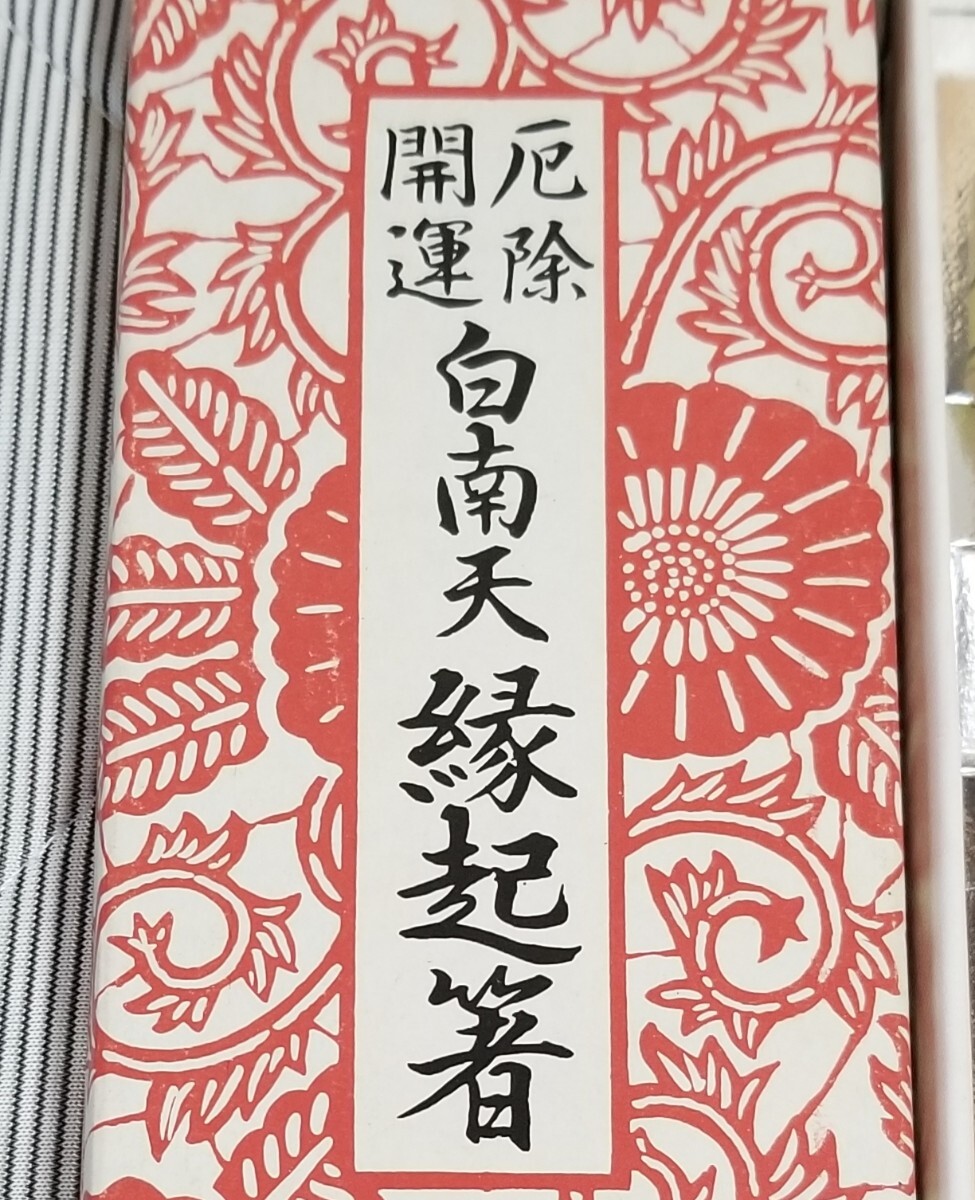 厄除
開運
白南天縁起箸